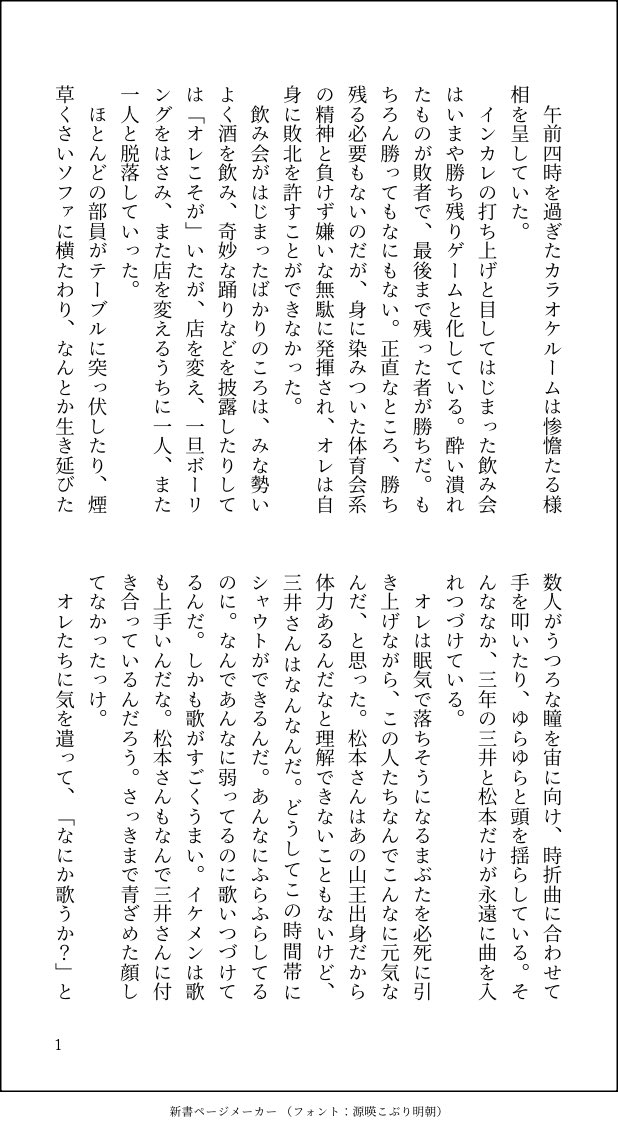 午前四時を過ぎたカラオケルームは惨憺たる様
相を呈していた。
　インカレの打ち上げと目してはじまった飲み会
はいまや勝ち残りゲームと化している。酔い潰れ
たものが敗者で、最後まで残った者が勝ちだ。も
ちろん勝ってもなにもない。正直なところ、勝ち
残る必要もないのだが、身に染みついた体育会系
の精神と負けず嫌いな無駄に発揮され、オレは自
身に敗北を許すことができなかった。
　飲み会がはじまったばかりのころは、みな勢い
よく酒を飲み、奇妙な踊りなどを披露したりして
は「オレこそが」いたが、店を変え、一旦ボーリ
ングをはさみ、また店を変えるうちに一人、また
一人と脱落していった。
　ほとんどの部員がテーブルに突っ伏したり、煙
草くさいソファに横たわり、なんとか生き延びた
数人がうつろな瞳を宙に向け、時折曲に合わせて
手を叩いたり、ゆらゆらと頭を揺らしている。そ
んななか、三年の三井と松本だけが永遠に曲を入
れつづけている。
　オレは眠気で落ちそうになるまぶたを必死に引
き上げながら、この人たちなんでこんなに元気な
んだ、と思った。松本さんはあの山王出身だから
体力あるんだなと理解できないこともないけど、
三井さんはなんなんだ。どうしてこの時間帯に
シャウトができるんだ。あんなにふらふらしてる
のに。なんであんなに弱ってるのに歌いつづけて
るんだ。しかも歌がすごくうまい。イケメンは歌
も上手いんだな。松本さんもなんで三井さんに付
き合っているんだろう。さっきまで青ざめた顔し
てなかったっけ。
　オレたちに気を遣って、「なにか歌うか？」と
1
新書ページメーカー（フォント：源暎こぶり明朝）